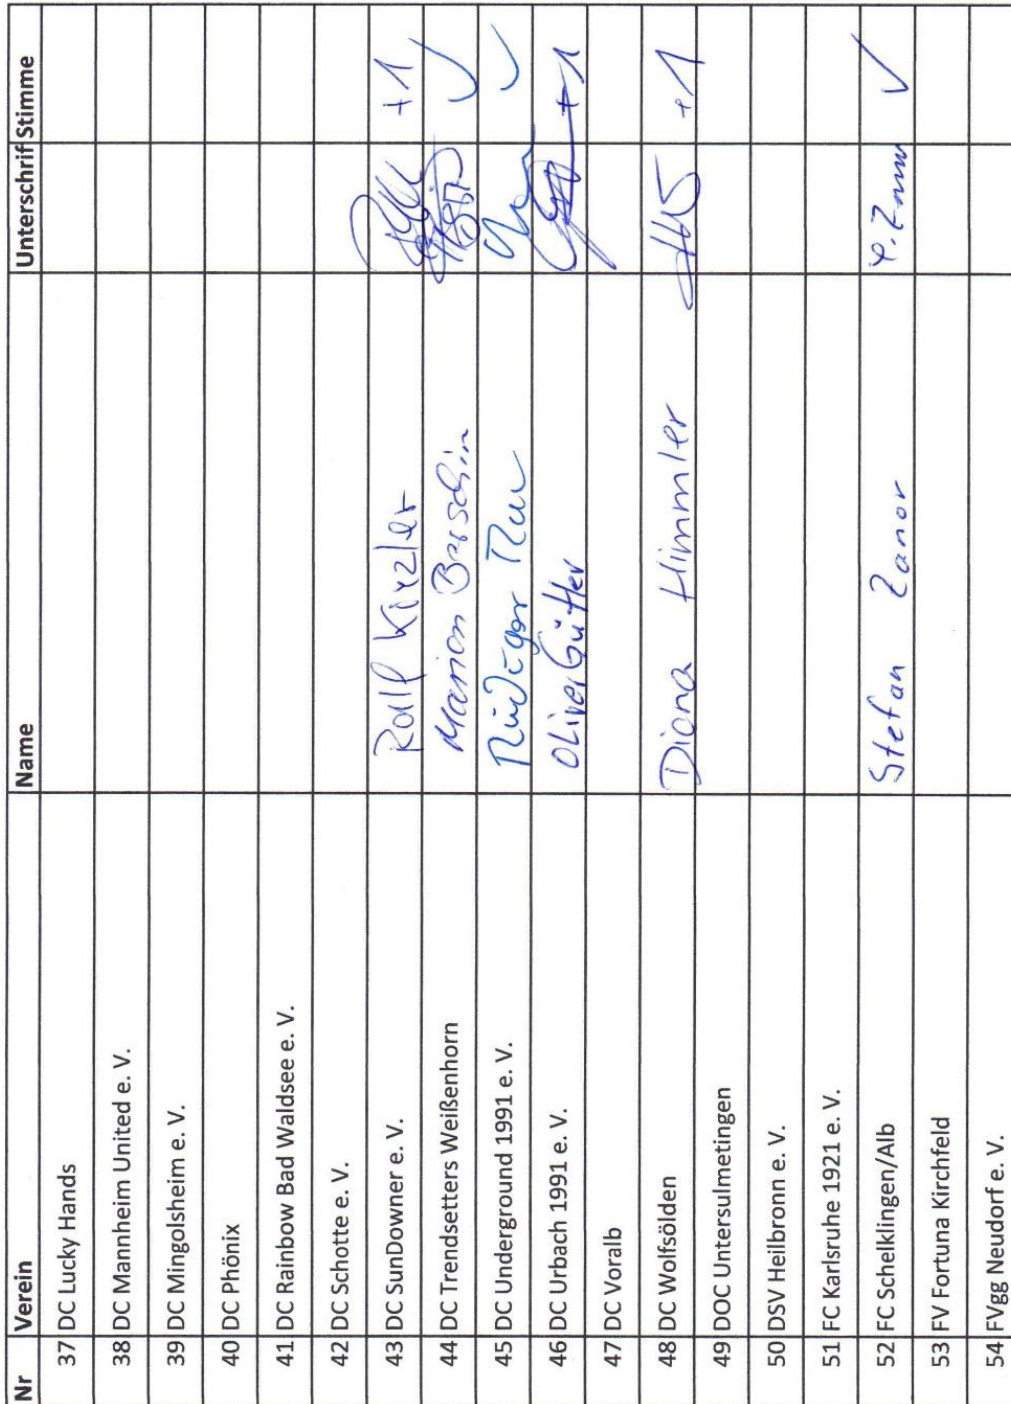 Nr Verein Name Unterschrif Stimme
37 DC Lucky Hands
38 DC Mannheim United e. V.
39 DC Mingolsheim e. V.
40 DC Phönix
41 DC Rainbow Bad Waldsee e. V.
42 DC Schotte e. V.
43 DC SunDowner e. V. Ralf Kinzler +1
44 DC Trendsetters Weißenhorn Marion ✓
45 DC Underground 1991 e. V. Rüdiger ✓
46 DC Urbach 1991 e. V. Oliver Gütter +1
47 DC Voralb
48 DC Wolfsölden Diana Himmler +1
49 DOC Untersulmetingen
50 DSV Heilbronn e. V.
51 FC Karlsruhe 1921 e. V.
52 FC Schelklingen/Alb Stefan Zanor ✓
53 FV Fortuna Kirchfeld
54 FVgg Neudorf e. V.